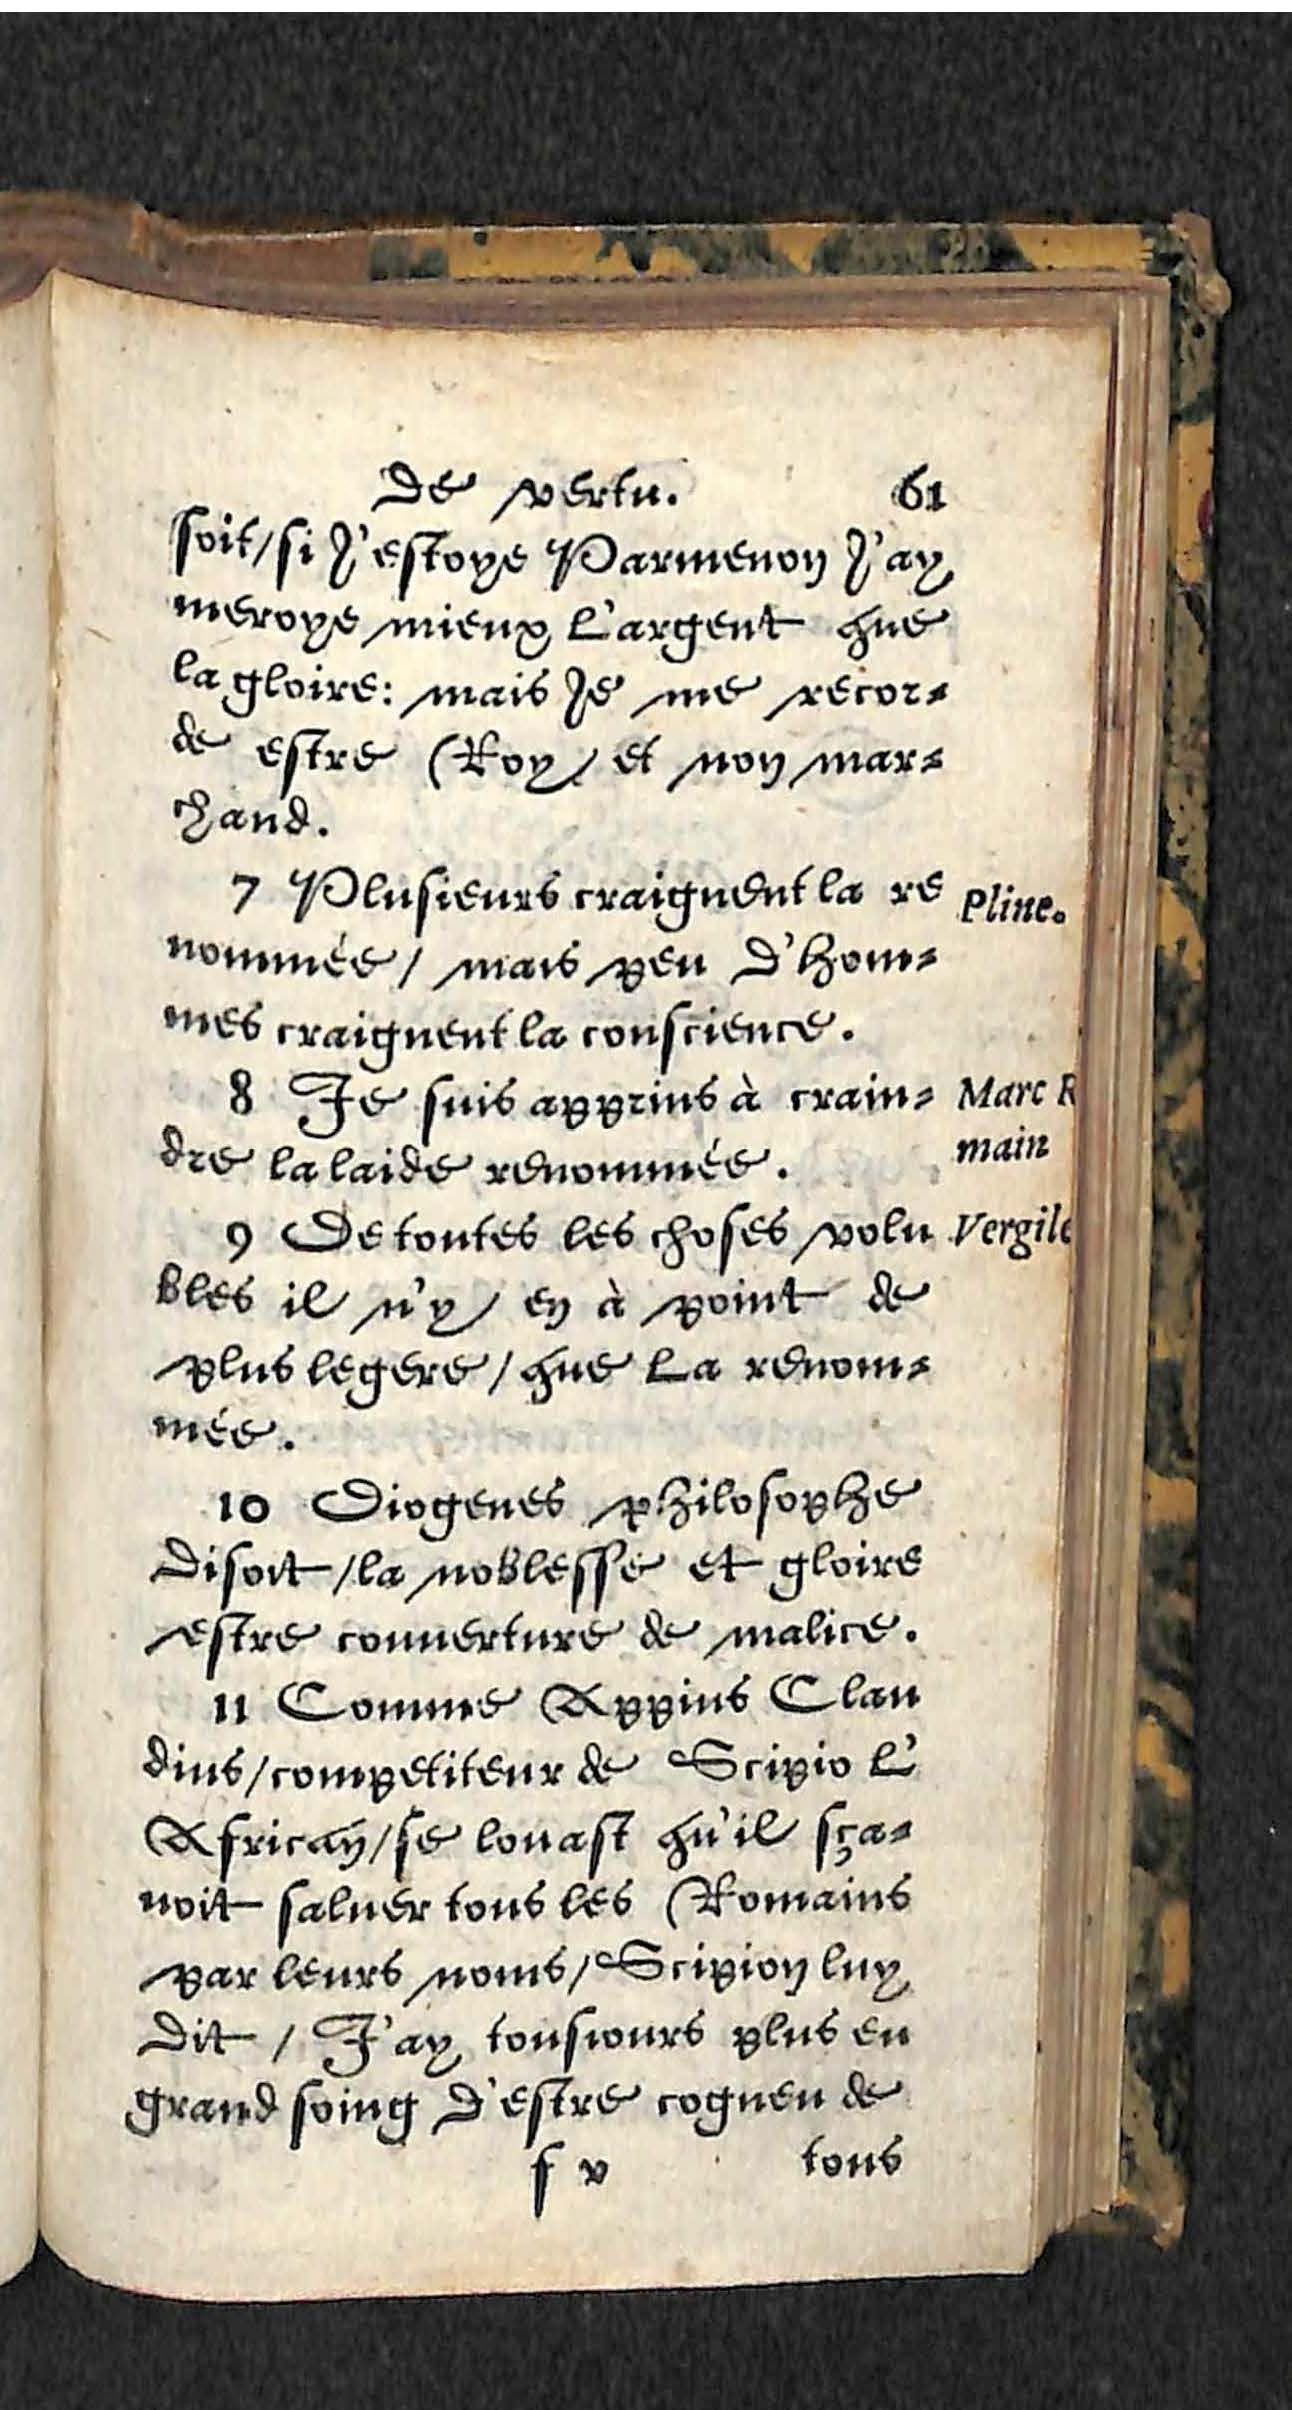 De vertu. 61
soit/si J'estoye Parmenon J'ay
meroye mieux L'argent que
la gloire: mais Je me recor=
de estre Roy/ et non mar=
chand.
7 Plusieurs craignent la re
Pline.
nommée/ mais peu d'hom=
mes craignent la conscience.
8 Je suis apprins à crain=
Marc R
dre la laide renommée.
main
9 De toutes les choses volu
Vergile
bles il n'y/ en à point de
plus legere/ que La renom=
mée.
10 Diogenes philosophe
Disoit/la noblesse et gloire
estre couuerture de malice.
11 Comme Appius Clau
dius/competiteur de Scipio L'
African/se louast qu'il sça=
uoit saluer tous les Romains
par leurs noms/Scipion luy
Dit / J'ay tousiours plus eu
grand soing d'estre cogneu de
f v tous